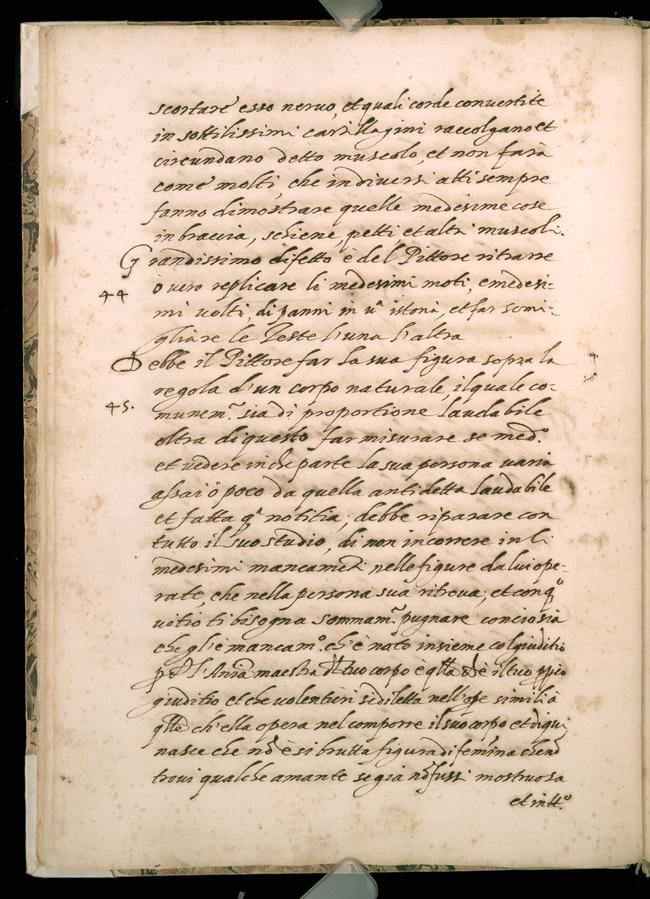 scortare esso neruo, et quali corde conuertite
in sottilissimi cartillagini raccolgano et
circundano detto muscolo, et non farà
come molti, che in diuersi atti sempre
fanno dimostrare quelle medesime cose
in braccia, schiene, petti et altri muscoli.
Grandissimo difetto è del Pittore ritrarre
44
o uero replicare li medesimi moti, e medesi-
mi uolti, di panni in uª istoria, et far somi-
gliare le Teste l'una l'altra
Debbe il Pittore far la sua figura sopra la
regola d'un corpo naturale, il quale co-
45.
munem.e sia di proportione laudabile
oltra di questo far misurare se med.º
et uedere in che parte la sua persona uaria
assai ò poco da quella antidetta laudabile
et fatta qª notitia, debbe riparare con
tutto il suo studio, di non incorrere in li
medesimi mancamēti nelle figure da lui ope-
rate, che nella persona sua ritroua, et con qº
uitio ti bisogna sommam.e pugnare conciosia
che gl'è mancam.º ch'è nato insieme col giuditio
l'Anima maestra tuo corpo è qlla chè il tuo ppio
giuditio et che uolentieri si diletta nell'ope simili à
qlle ch'ella opera nel comporre il suo corpo et di qui
nasce che nō è si brutta figura di femina che nō
troui qualche amante se già nō fussi mostruosa
et in tt.º